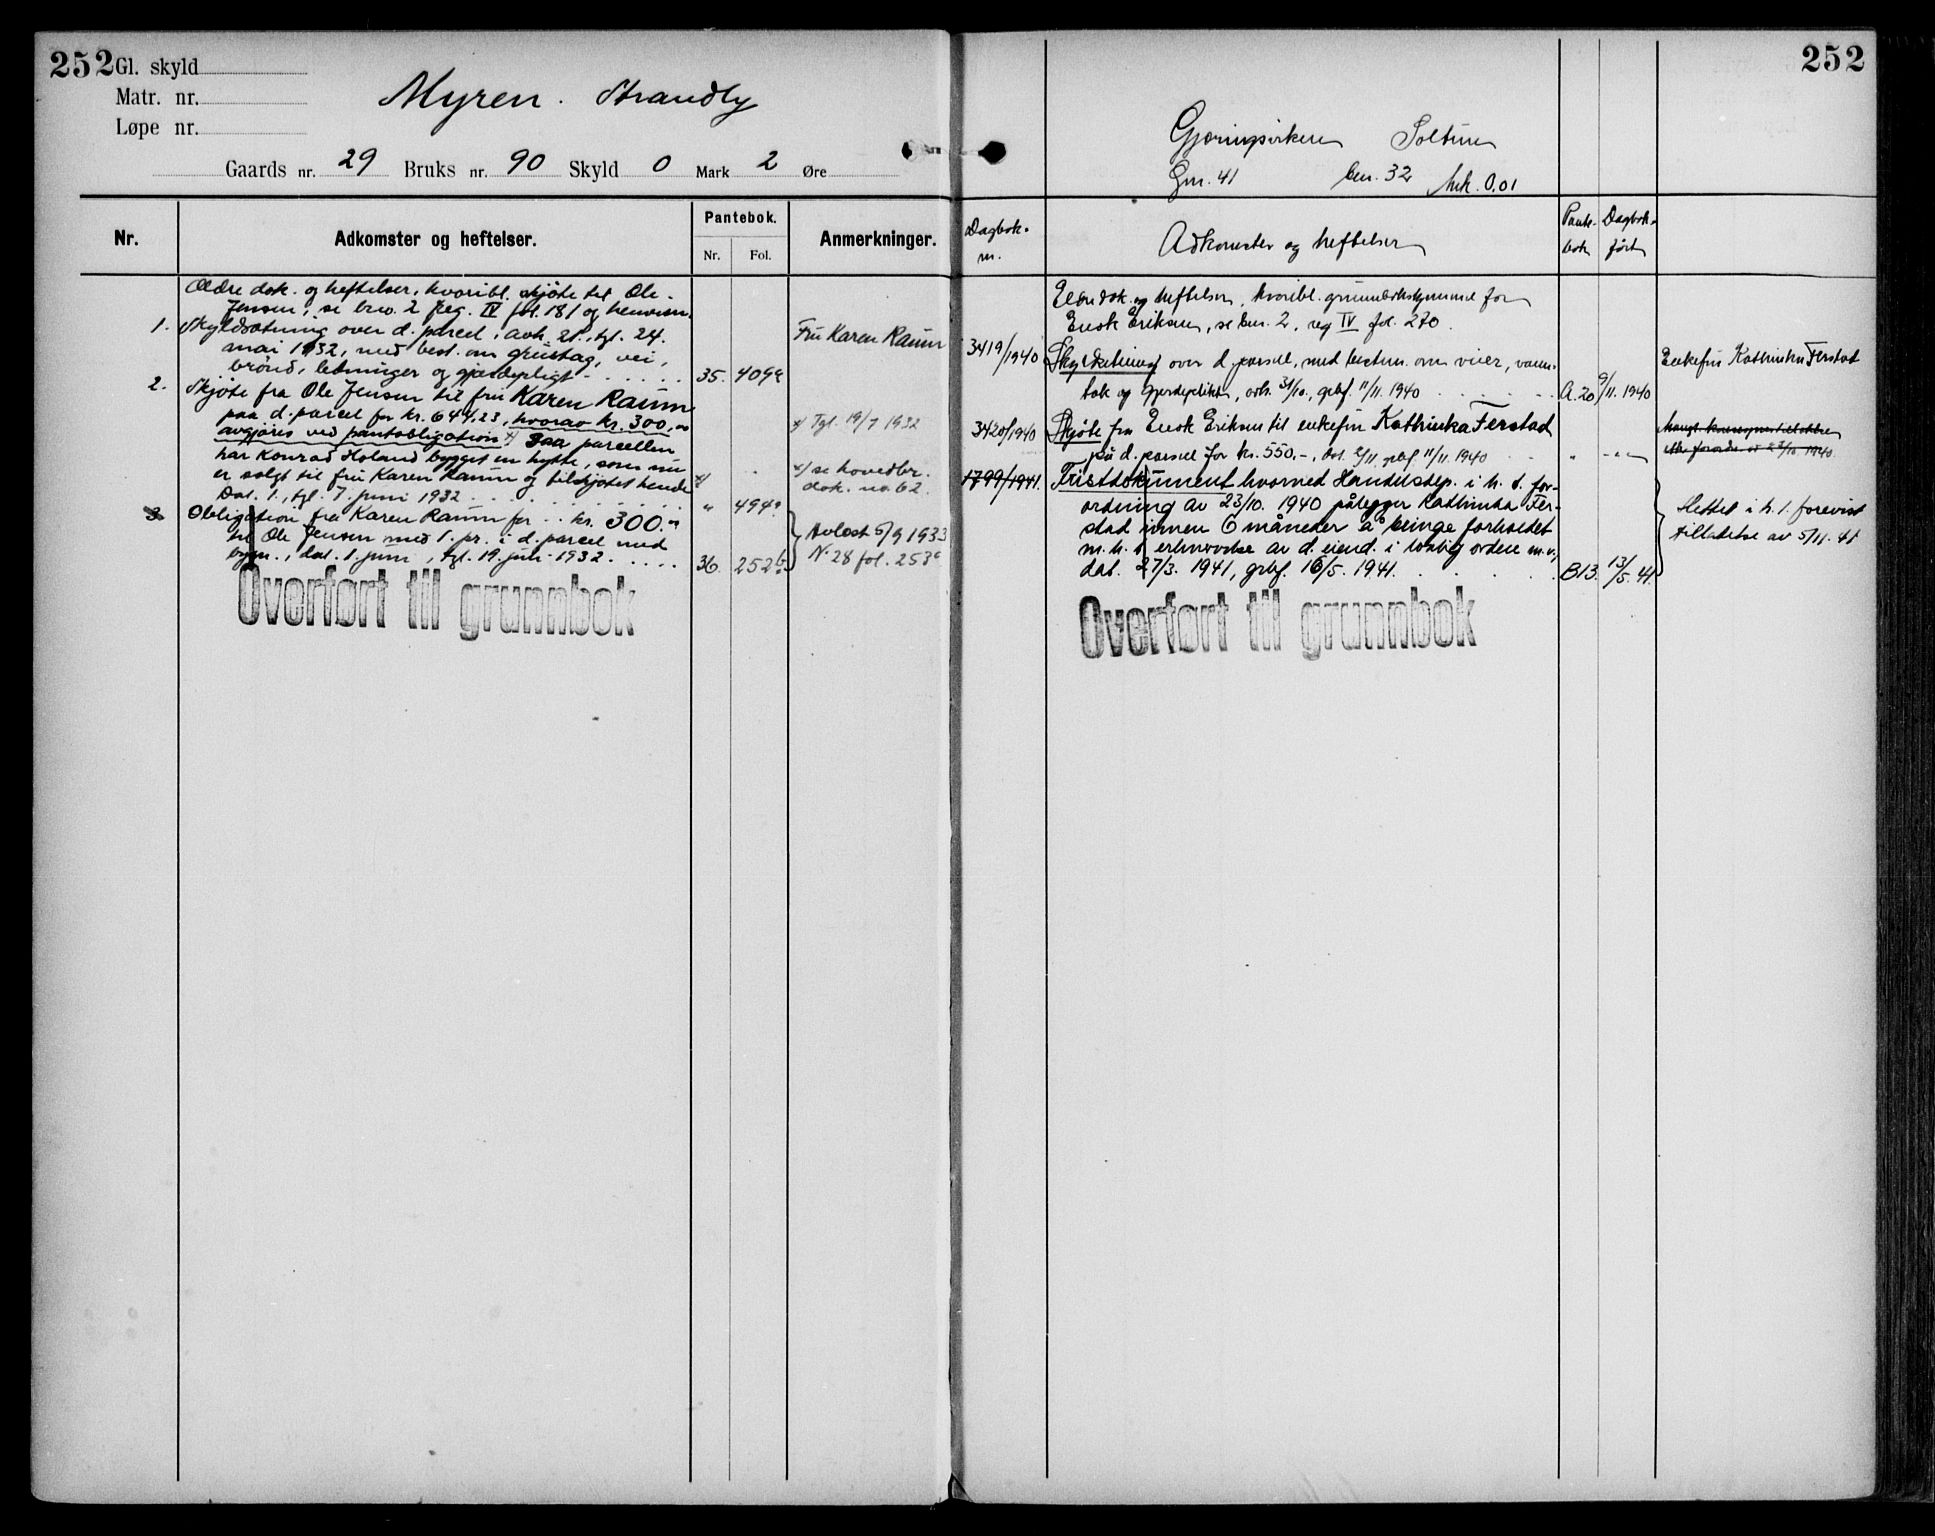 252 Gl. skyld
Matr. nr.
Løpe nr.
Myren. Strandly
Gaards nr. 29 Bruks nr. 90 Skyld 0 Mark 2 Øre
Nr.
Adkomster og heftelser.
Pantebok.
Nr. Fol.
Anmerkninger.
Ældre dok. og heftelser, hvoribl. skjøte til Ole
Jensen, se brno. 2 reg. IV fol. 181 og henvisn.
1. Skyldsætning over d. parcel, avh. 21., tgl. 24.
mai 1932, med best. om grustag, vei,
brønd, ledninger og gjerdepligt 35. 409a
Fru Karen Raum
2. Skjøte fra Ole Jensen til fru Karen Raum
paa d. parcel for kr. 644,23, hvorav kr. 300,00
avgjøres ved pantobligation x) Paa parcellen
x) Tgl. 19/7 1932
har Konrad Holand bygget en hytte, som nu
er solgt til fru Karen Raum og tilskjøtet hende x/
x/ se hovedbr.
dok. no. 62.
Dat. 1., tgl. 7. juni 1932 " 494a
3. Obligation fra Karen Raum for kr. 300.00
til Ole Jensen med 1. pr. i d. parcel med
bygn., dat. 1. juni, tgl. 19. juli 1932. 36. 252b
Avløst 5/9 1933
N. 28 fol. 253a
Overført til grunnbok
252
Soltun
Gnr. 41 bnr. 32 Mk. 0.01
Dagbok-
nr.
Adkomster og heftelser
Pante-
bok
Dagbok-
ført
Eldre dok. og heftelser, hvoribl. grunnboks for
Enok Eriksen, se bnr. 2, reg IV fol. 270.
3419/1940 Skyldsketning over d. parsel, med bestem. om veier, vann-
tak og gjerdeplikt, avh. 31/10., grbf. 11/11. 1940 A. 20 9/11. 1940
Enkefru Kathinka Ferstad
3420/1940 Skjøte fra Enok Eriksen til enkefru Kathinka Ferstad
på d. parsel for kr. 550,-, dat. 2/11 grbf. 11/11. 1940 " "
1799/1941. Fristdokument hvorved Handelsdep. i h. t. for-
ordning av 23/10. 1940 pålegger Kathinka Fer-
stad innen 6 måneder å bringe forholdet
m. h. t. erhvervelse av d. eiend. i lovlig orden m.v.,
dat. 27/3. 1941, grbf. 16/5. 1941. B13. 13/5. 41.
Slettet i h. t. forevist
tillatelse av 5/11. 41
Overført til grunnbok